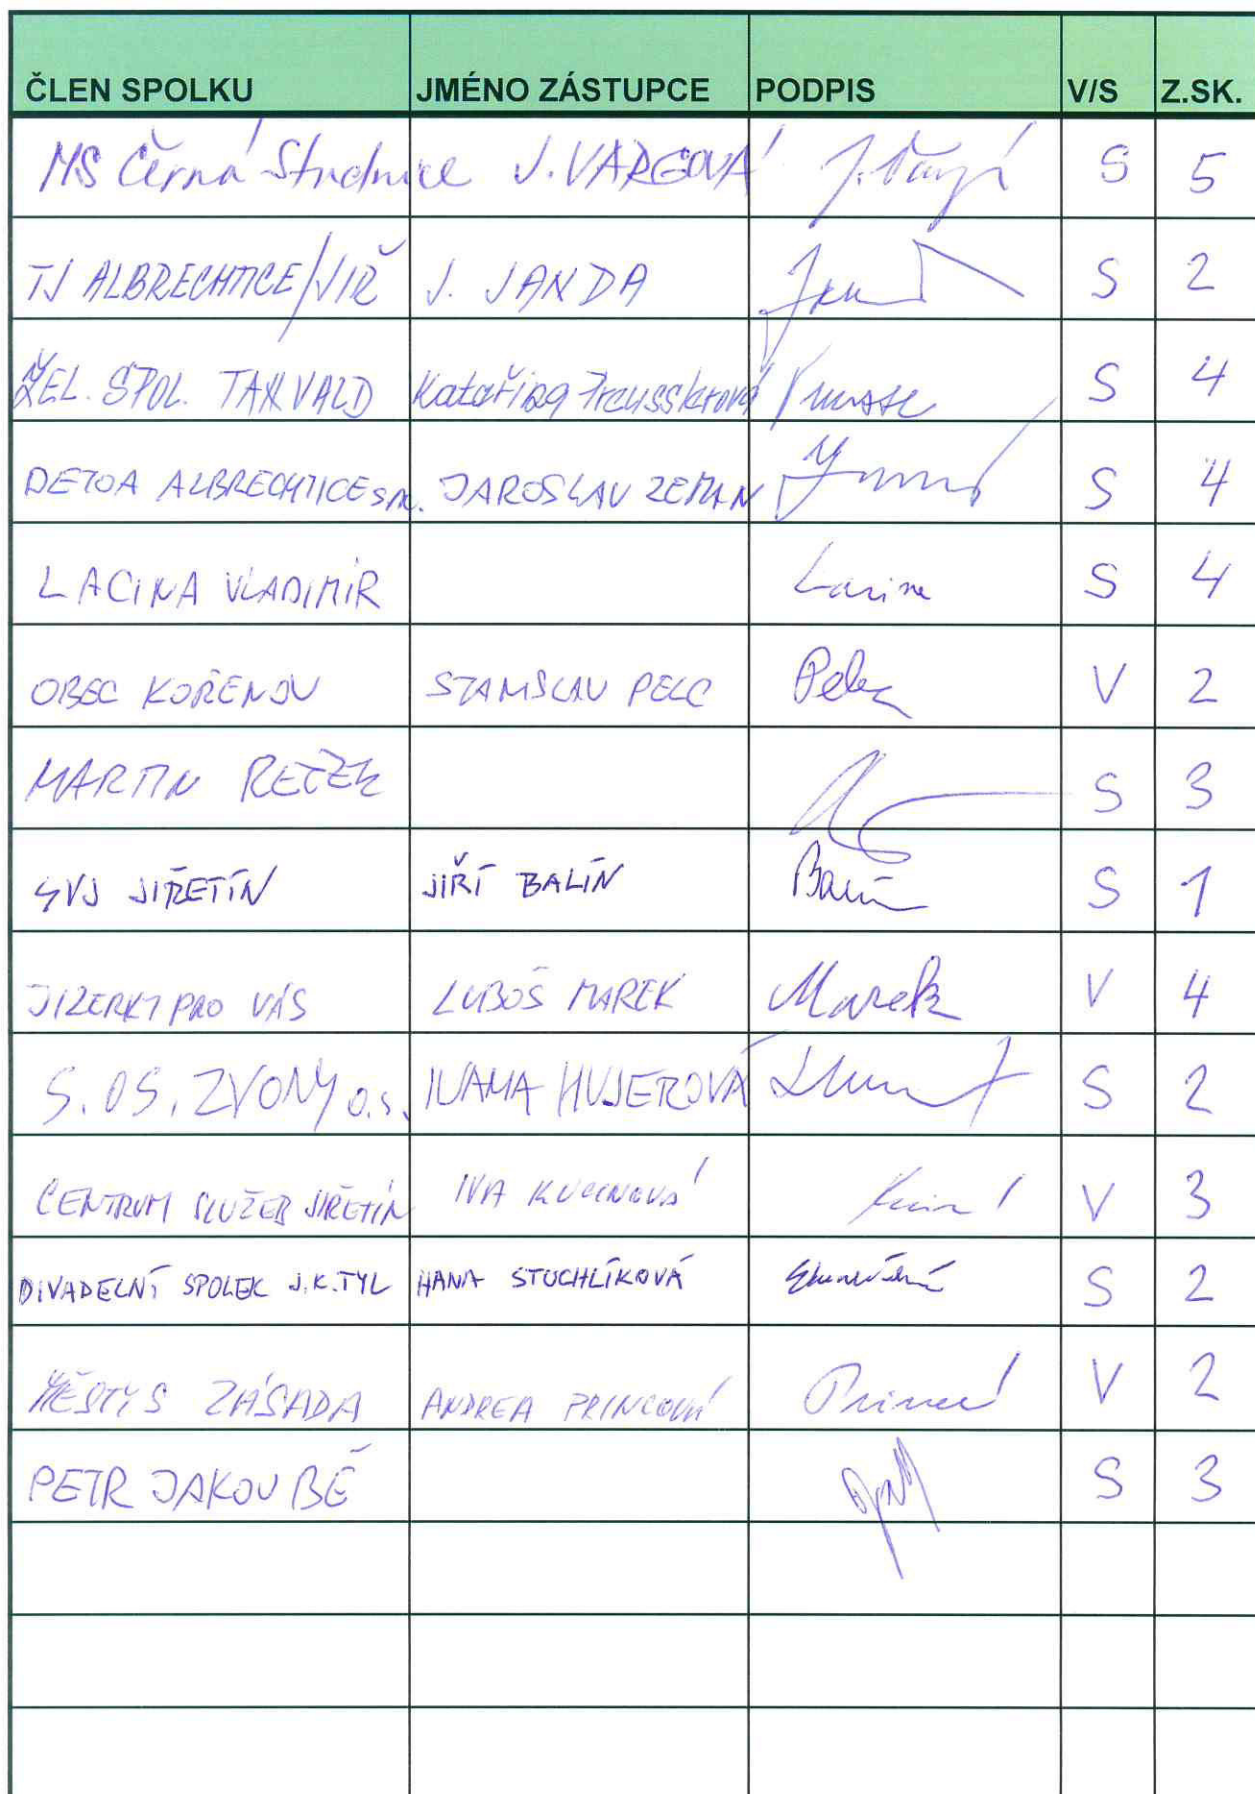 ČLEN SPOLKU JMÉNO ZÁSTUPCE PODPIS V/S Z.SK.
MS Černá Studnice J. VARGOVÁ S 5
TJ ALBRECHTICE/JIŘ J. JANDA S 2
ŽEL. SPOL. TANVALD Kateřina Preusslerová S 4
DETOA ALBRECHTICE s.r.o. JAROSLAV ZEMAN S 4
LACINA VLADIMÍR Lacina S 4
OBEC KOŘENOV STANISLAV PELC Pelc V 2
MARTIN S 3
SVJ JIŘETÍN JIŘÍ BALÍN Balín S 1
JIZERKY PRO VÁS LUBOŠ MAREK Marek V 4
S.OS. ZVONY o.s. IVANA HUJEROVÁ S 2
CENTRUM SLUŽEB JIŘETÍN IVA V 3
DIVADELNÍ SPOLEK J.K.TYL HANA STUCHLÍKOVÁ S 2
MĚSTYS ZÁSADA ANDREA PRINCOVÁ V 2
PETR JAKOUBĚ S 3